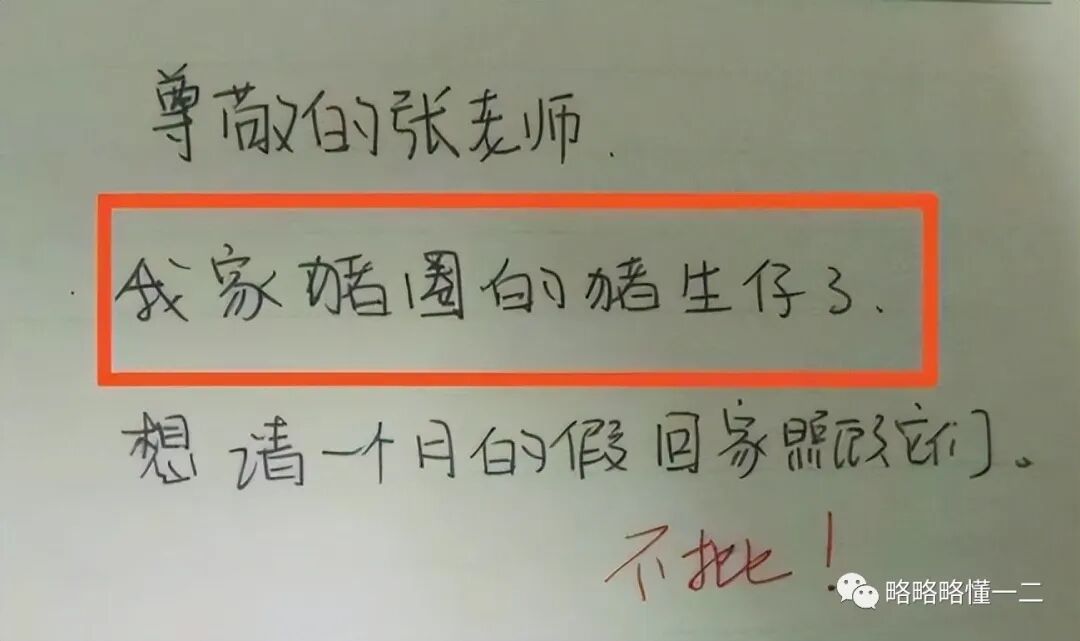 尊敬的张老师.
我家猪圈的猪生仔了、
想请一个月的假回家照顾它们。
不批！
略略略懂一二